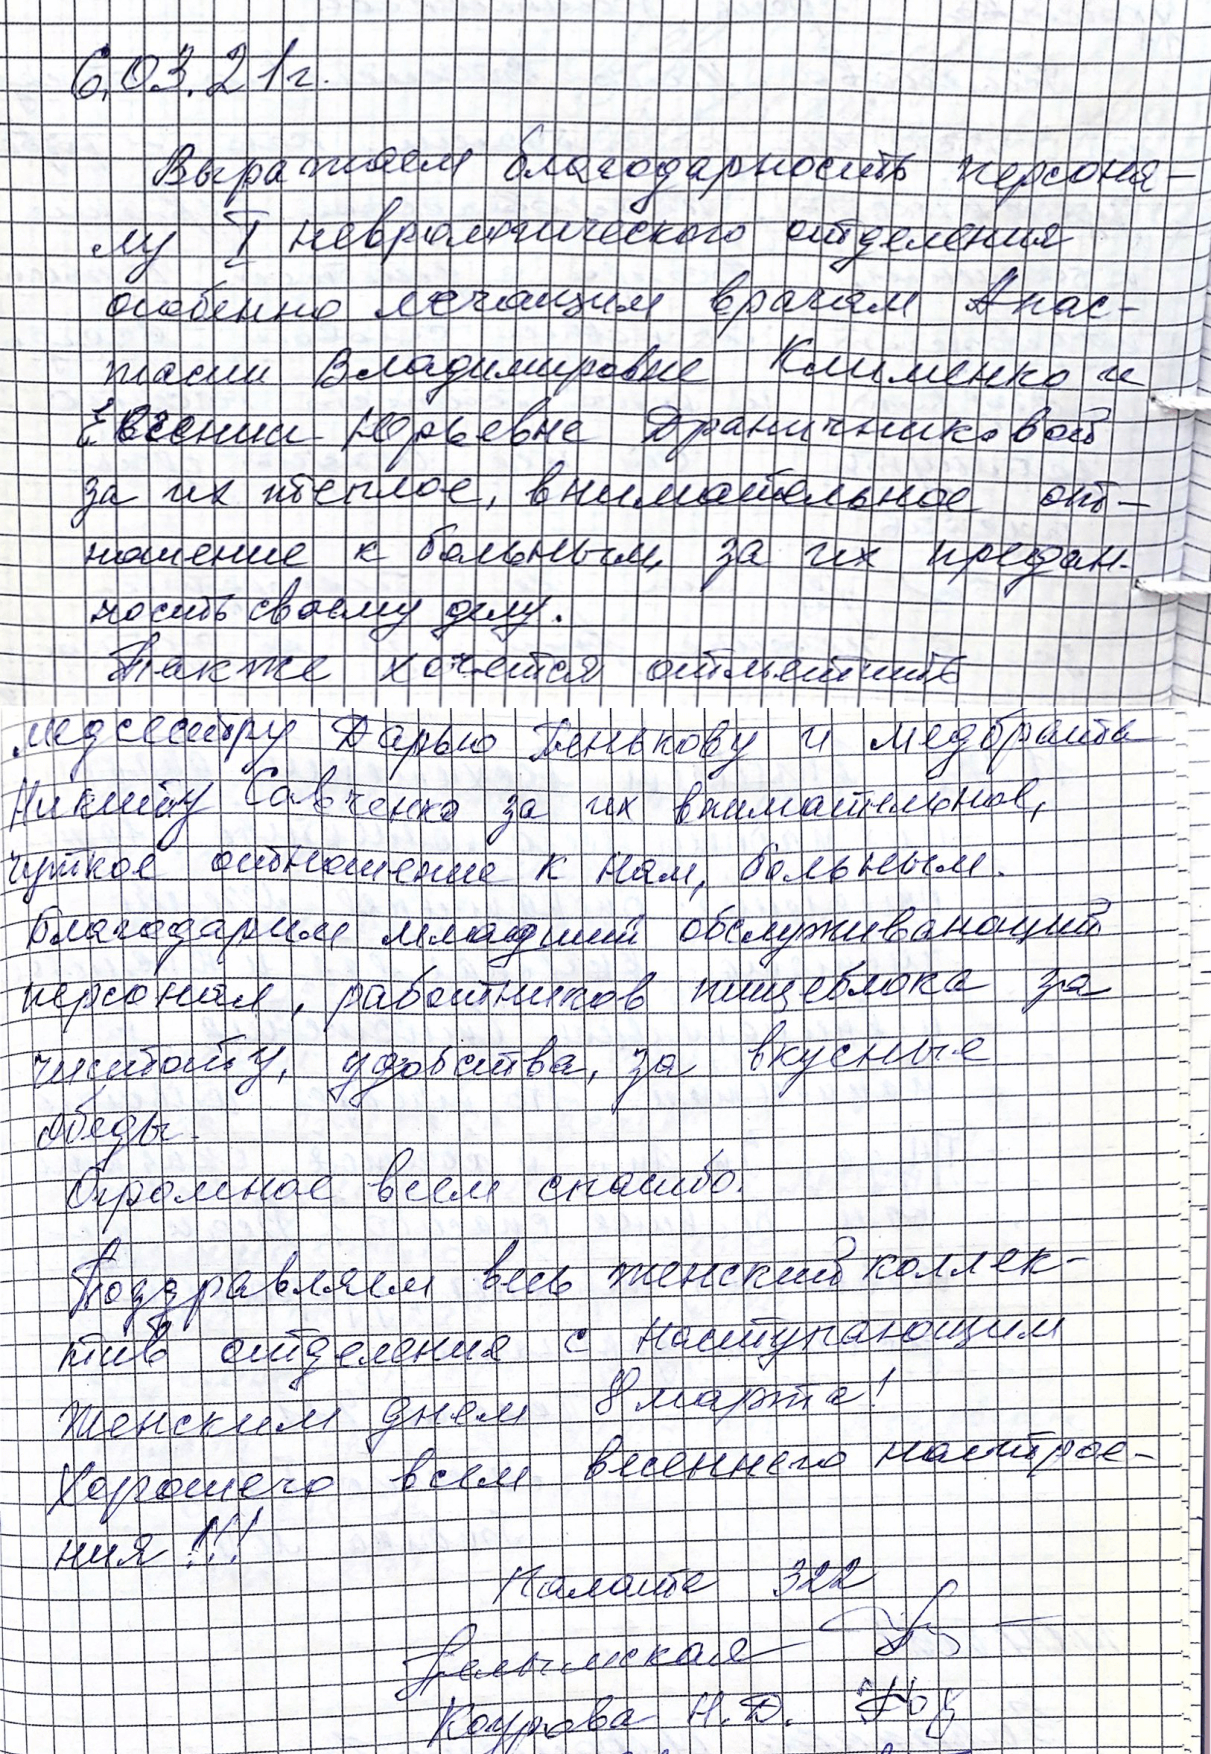 6.03.21г.
Выражаем благодарность персона-
лу I неврологического отделения
особенно лечащим врачам Анас-
тасии Владимировне Клименко и
Евгении Юрьевне Драничниковой
за их теплое, внимательное от-
ношение к больным, за их предан-
ность своему делу.
Также хочется отметить
медсестру Дарью Пенькову и медбрата
Никиту Савченко за их внимательное,
чуткое отношение к нам, больным.
Благодарим младший обслуживающий
персонал, работников пищеблока за
чистоту, удобства, за вкусные
обеды.
Огромное всем спасибо.
Поздравляем весь женский коллек-
тив отделения с наступающим
женским днем 8 марта!
Хорошего всем весеннего настрое-
ния!!!
Палата 322
Коурова Н.Д.